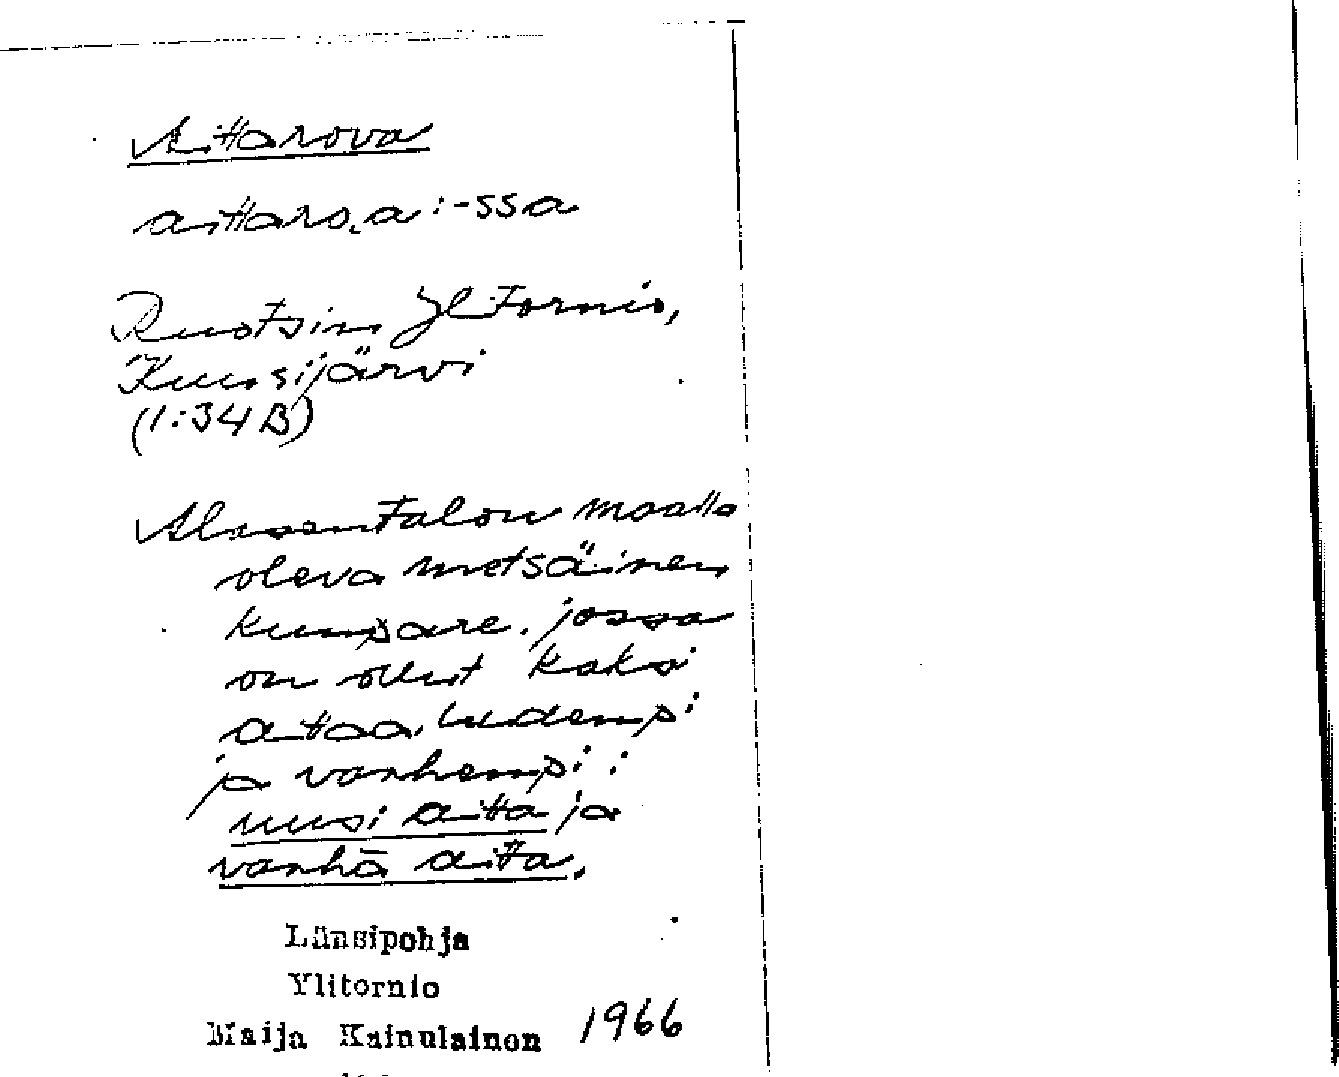 Aittarova
aittaro.a :-ssa
Ruotsin Ylitornio,
Kuusijärvi
(1:34 B)
Alasentalon maalla
oleva metsäinen
kumpare, jossa
on ollut kaksi
aittaa, uudempi
ja vanhempi:
uusi aitta ja
vanha aitta.
Länsipohja
Ylitornio
Maija Kainulainen 1966